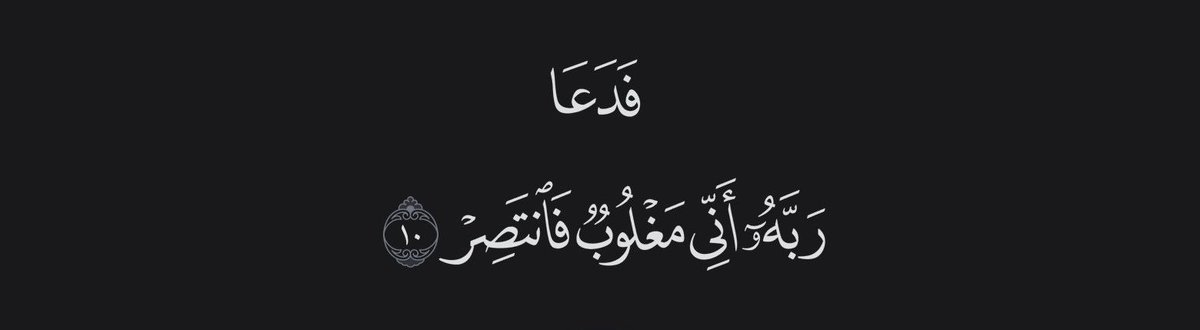 فَدَعَا
رَبَّهُۥٓ أَنِّي مَغۡلُوبٞ فَٱنتَصِرۡ ١٠